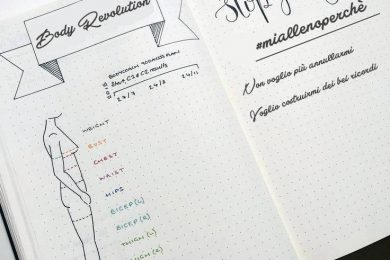 Body Revolution
BODYCOACH
24/7
24/9
24/11
WEIGHT
BUST
CHEST
WAIST
HIPS
BICEP (L)
BICEP (R)
THIGH (L)
THIGH (R)
#miallenoperchè
Non voglio più annullarmi
Voglio costruirmi dei bei ricordi